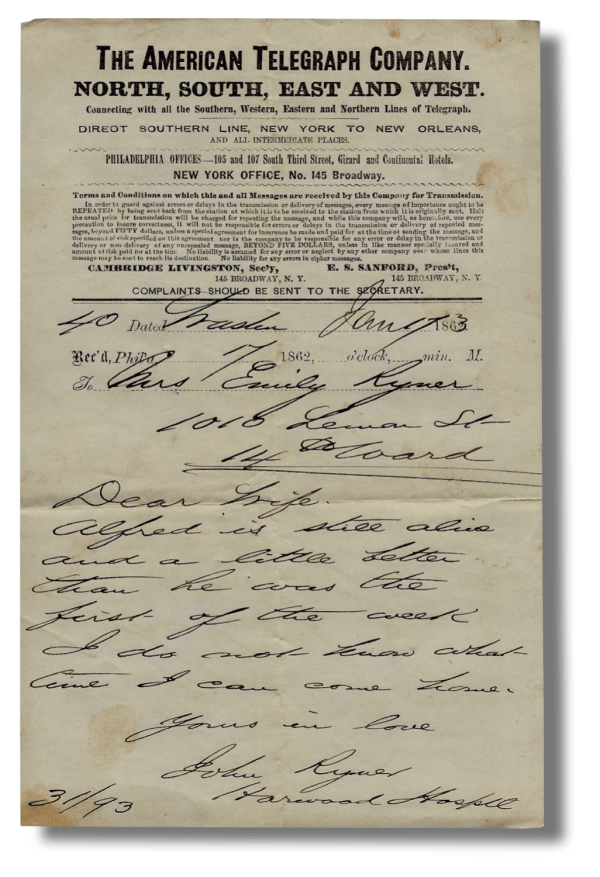 THE AMERICAN TELEGRAPH COMPANY.
NORTH, SOUTH, EAST AND WEST.
Connecting with all the Southern, Western, Eastern and Northern Lines of Telegraph.
DIRECT SOUTHERN LINE, NEW YORK TO NEW ORLEANS,
AND ALL INTERMEDIATE PLACES.
PHILADELPHIA OFFICES—105 and 107 South Third Street, Girard and Continental Hotels.
NEW YORK OFFICE, No. 145 Broadway.
Terms and Conditions on which this and all Messages are received by this Company for Transmission.
In order to guard against errors or delays in the transmission or delivery of messages, every message of importance ought to be
REPEATED by being sent back from the station at which it is to be received to the station from which it is originally sent. Half
the usual price for transmission will be charged for repeating the message, and while this company will, as heretofore, use every
precaution to insure correctness, it will not be responsible for errors or delays in the transmission or delivery of repeated mes-
sages, beyond FIFTY dollars, unless a special agreement for insurance be made and paid for at the time of sending the message, and
the amount of risk specified on this agreement nor is the company to be responsible for any error or delay in the transmission or
delivery or non delivery of any unrepeated message, BEYOND FIVE DOLLARS, unless in like manner specially insured and
amount of risk paid for at the time. No liability is assumed for any error or neglect by any other company over whose lines this
message may be sent to reach its destination. No liability for any errors in cipher messages.
CAMBRIDGE LIVINGSTON, Sec'y, E. S. SANFORD, Pres't,
145 BROADWAY, N. Y. 145 BROADWAY, N. Y.
COMPLAINTS SHOULD BE SENT TO THE SECRETARY.
40 Dated Washn Jany 17 1863
Rec'd, Phil'a 17 1862, o'clock, min. M.
To Mrs Emily Ryner
1016 Lemon St
14th Ward
Dear Wife.
Alfred is still alive
and a little better
than he was the
first of the week
I do not know what
time I can come home.
Yours in love
John Ryner
31/93 Harwood Hospl